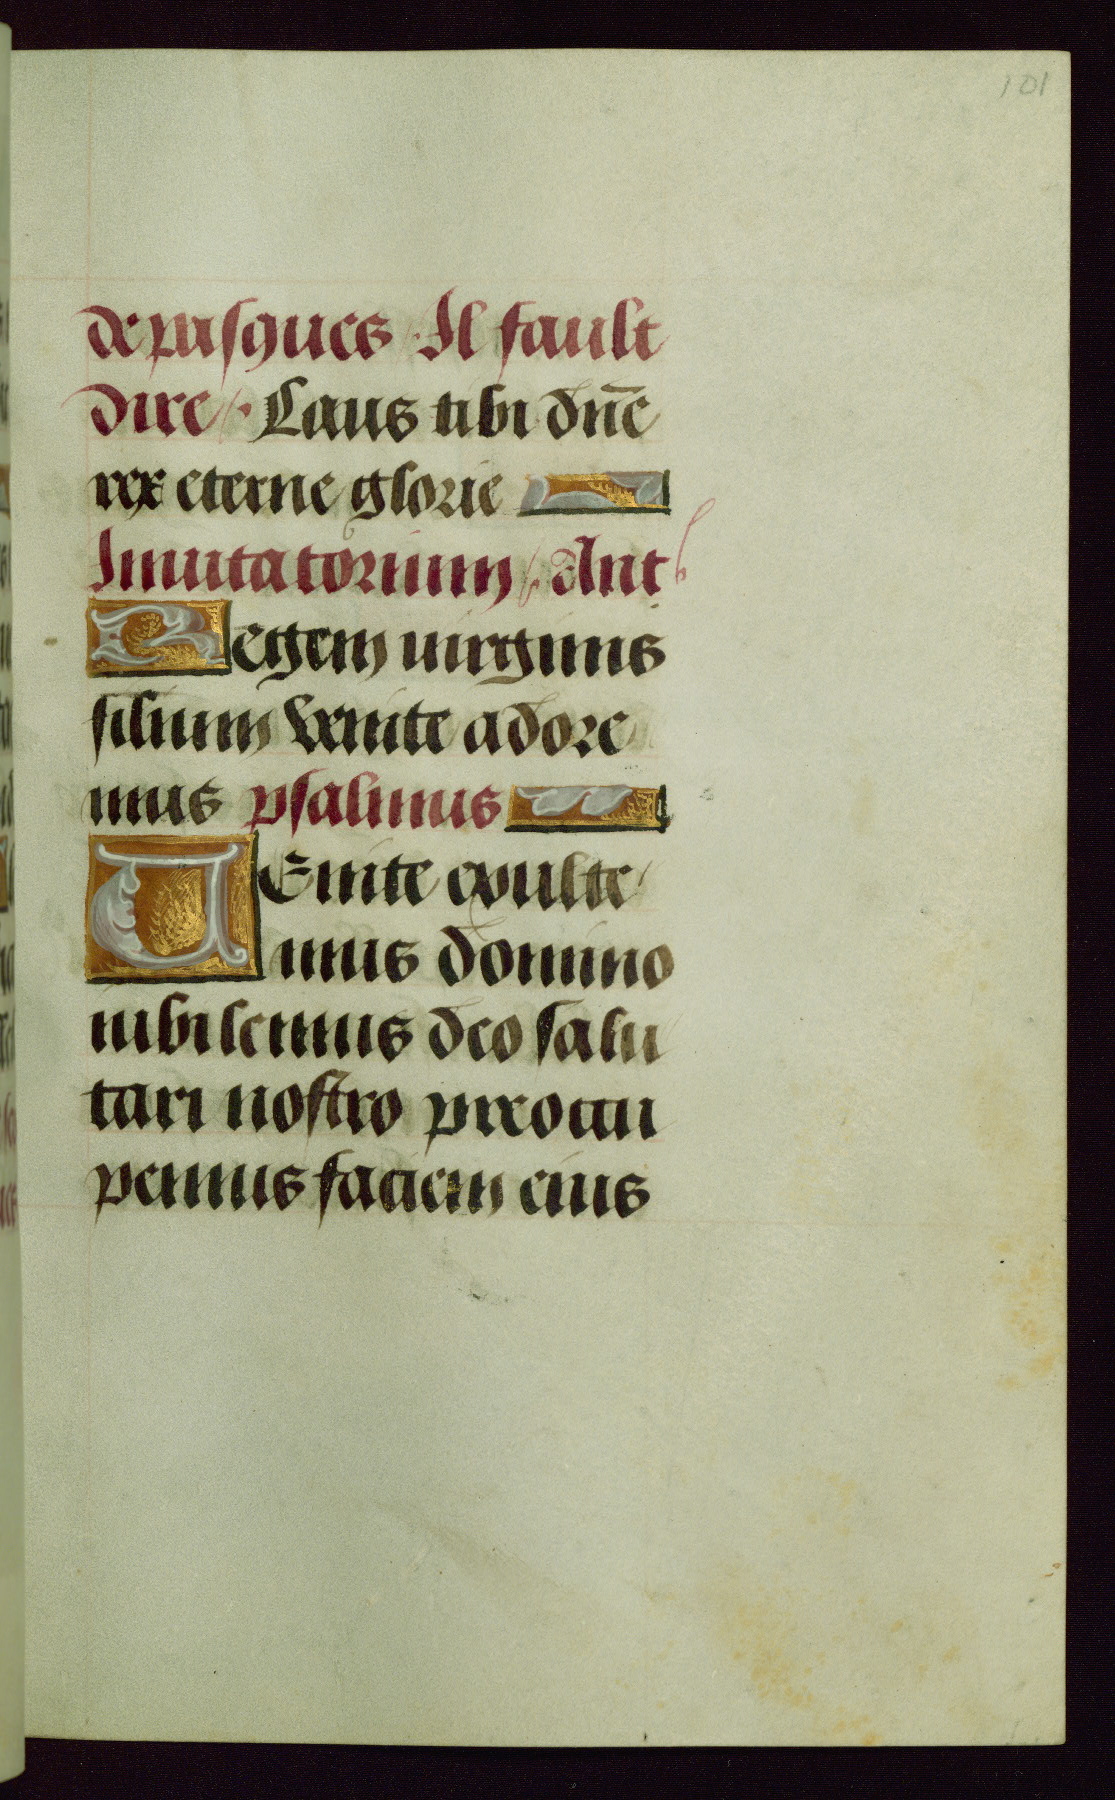 101
de pasques. Il fault
dire. Laus tibi dn̄e
rex eterne glorie
Inuitatorium. Ant
Regem uirginis
filium venite adore
mus psalmus
UEnite exulte
mus domino
iubilemus deo salu
tari nostro preocu
pemus faciem eius